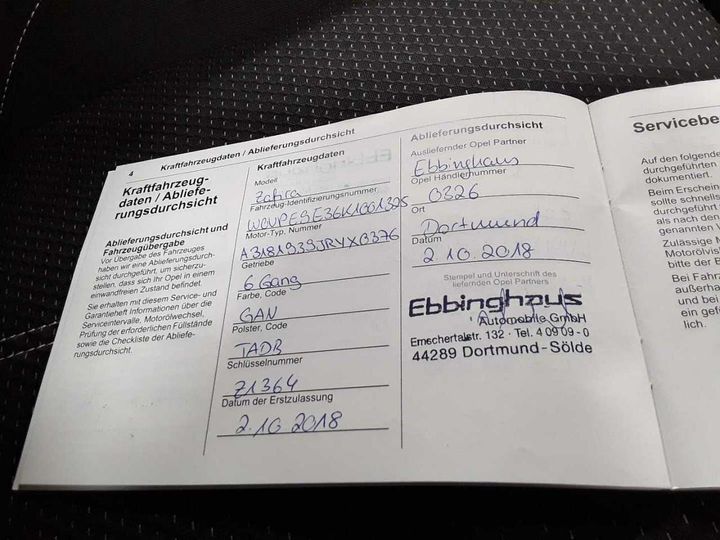 4
Kraftfahrzeugdaten / Ablieferungsdurchsicht
Kraftfahrzeug-
daten / Abliefe-
rungsdurchsicht
Ablieferungsdurchsicht und
Fahrzeugübergabe
Vor Übergabe des Fahrzeuges
haben wir eine Ablieferungsdurch-
sicht durchgeführt, um sicherzu-
stellen, dass sich Ihr Opel in einem
einwandfreien Zustand befindet.
Sie erhalten mit diesem Service- und
Garantieheft Informationen über die
Serviceintervalle, Motorölwechsel,
Prüfung der erforderlichen Füllstände
sowie die Checkliste der Abliefe-
rungsdurchsicht.
Kraftfahrzeugdaten
Modell
Zafira
Fahrzeug-Identifizierungsnummer
W0VPE9E36K1001325
Motor-Typ, Nummer
A3181939JRYX0376
Getriebe
6 Gang
Farbe, Code
GAN
Polster, Code
TADR
Schlüsselnummer
Z1364
Datum der Erstzulassung
2.10.2018
Ablieferungsdurchsicht
Ausliefernder Opel Partner
Ebbinghaus
Opel Händlernummer
0326
Ort
Dortmund
Datum
2.10.2018
Stempel und Unterschrift des
liefernden Opel Partners
Ebbinghaus
Automobile GmbH
Emschertalstr. 132 · Tel. 4 09 09 - 0
44289 Dortmund-Sölde
Servicebe
Auf den folgende
durchgeführten
dokumentiert.
Beim Erschein
sollte schnells
durchgeführt
als nach den
genannten V
Zulässige
Motorölvis
bitte der B
Bei Fahr
außerha
und bei
ein gef
lich.